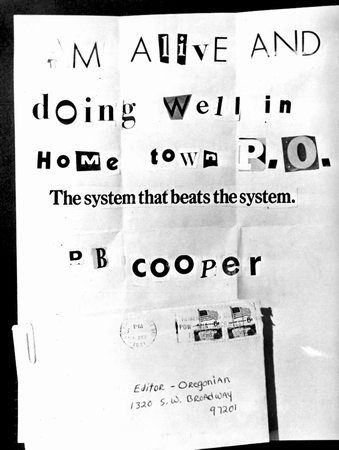 AM ALivE AND
doing Well in
HoMe town P.O.
The system that beats the system.
DB cooper
PM
Editor - Oregonian
1320 S.W. Broadway
97201